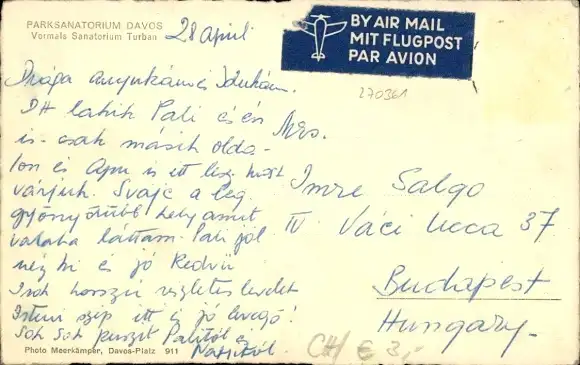 PARKSANATORIUM DAVOS
Vormals Sanatorium Turban
28 April
BY AIR MAIL
MIT FLUGPOST
PAR AVION
270361
Drága anyukám és
Itt lakik Pali és én
is csak másik olda-
lon és Apu is itt lesz most
várjuk. Svájc a leg
gyönyörűbb hely amit
valaha láttam. Pali jól
néz ki és jó kedvű
Irok hosszú részletes levelet
Isteni szép itt és jó levegő!
Sok Sok puszit Palitól és
Mrs.
Imre Salgo
IV Váci Ucca 37
Budapest
Hungary
CH € 3,-
Photo Meerkämper, Davos-Platz 911